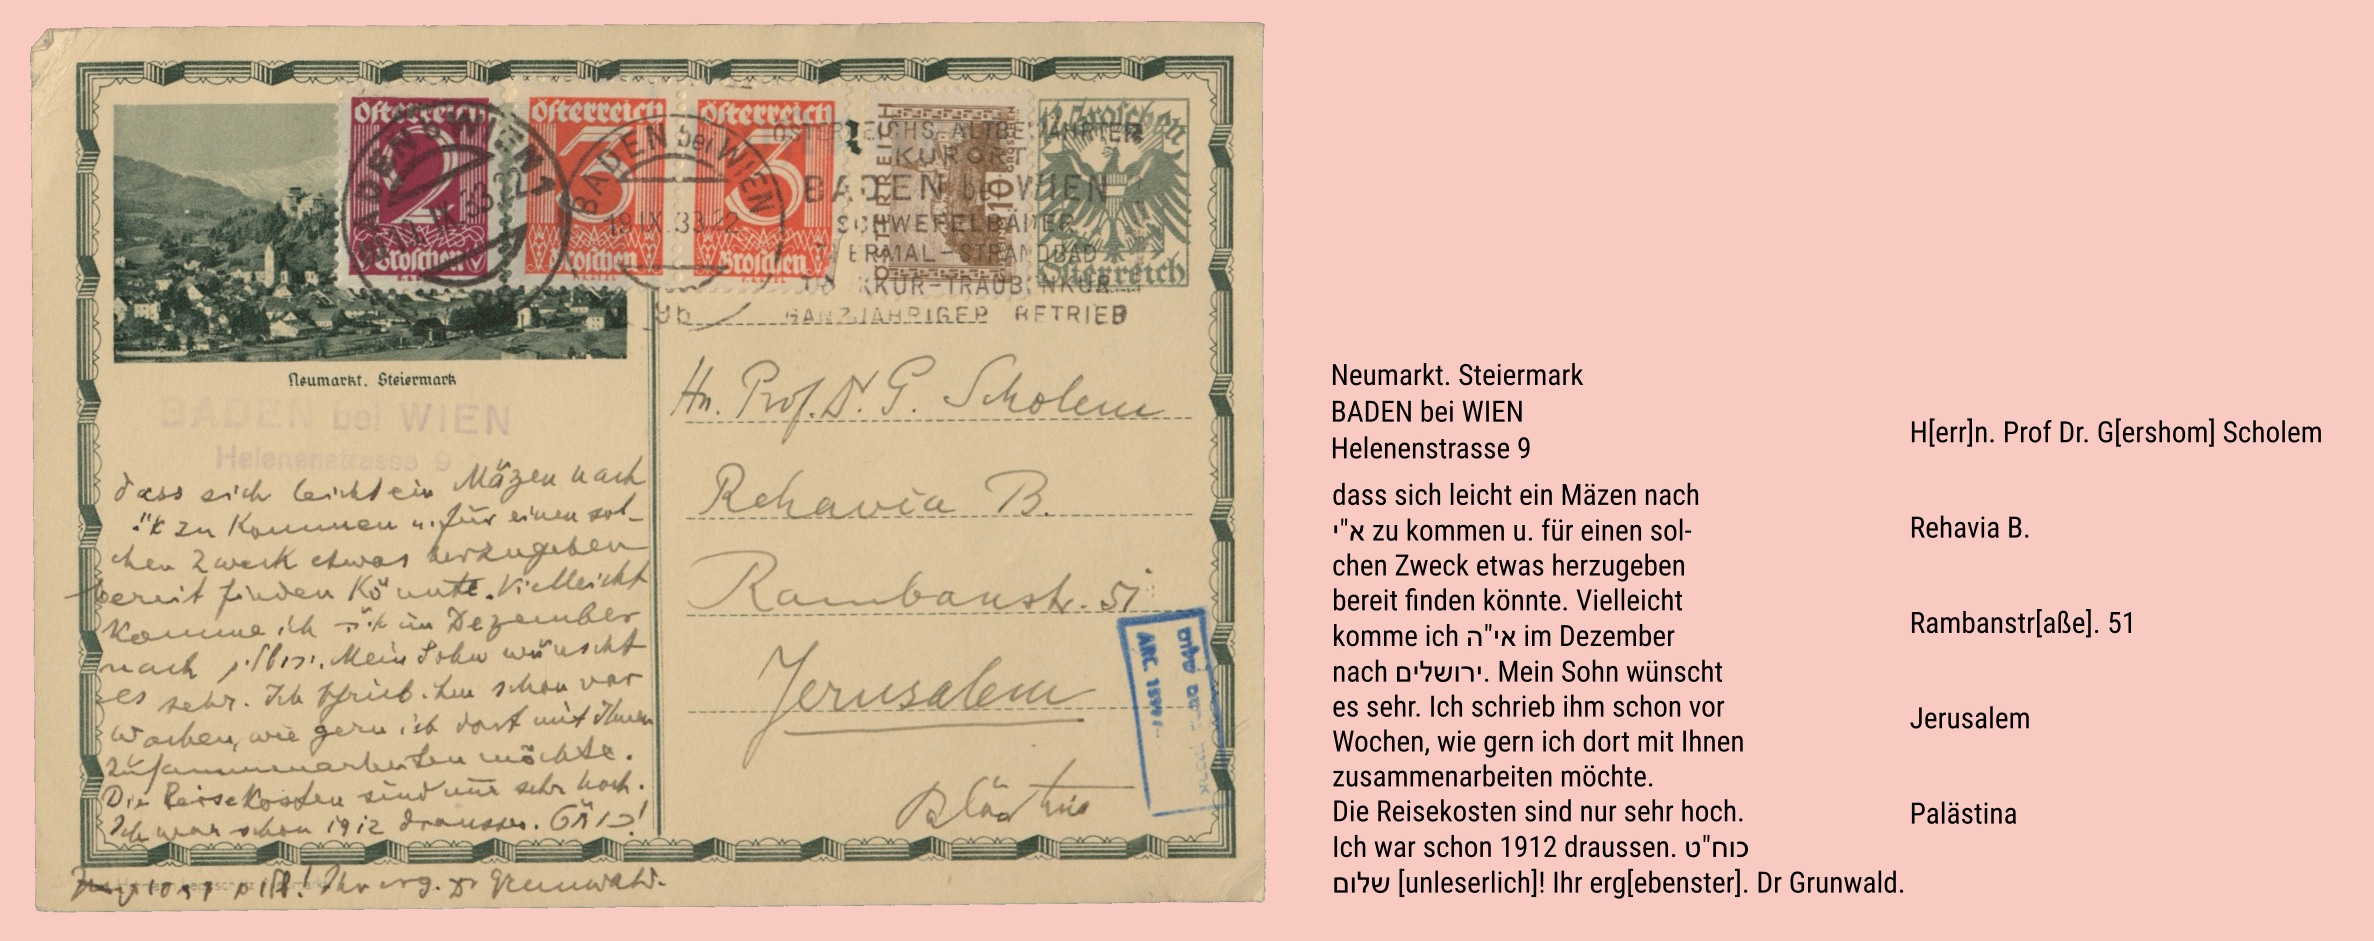 Österreich
2
Groschen
Österreich
3
Groschen
Österreich
3
Groschen
ÖSTERREICH
10
GROSCHEN
12 Groschen
Österreich
BADEN b. WIEN 1
BADEN bei WIEN
19.IX.33.22
ÖSTERREICHS ALTBEWÄHRTER
KURORT
BADEN bei WIEN
SCHWEFELBÄDER
THERMAL-STRANDBAD
TRINKKUR-TRAUBENKUR
GANZJÄHRIGER BETRIEB
Neumarkt. Steiermark
BADEN bei WIEN
Helenenstrasse 9
dass sich leicht ein Mäzen nach
א"י zu kommen u. für einen sol-
chen Zweck etwas herzugeben
bereit finden könnte. Vielleicht
komme ich אי"ה im Dezember
nach ירושלים. Mein Sohn wünscht
es sehr. Ich schrieb ihm schon vor
Wochen, wie gern ich dort mit Ihnen
zusammenarbeiten möchte.
Die Reisekosten sind nur sehr hoch.
Ich war schon 1912 draussen.
Ihr erg. Dr Grunwald.
Hn. Prof. Dr. G. Scholem
Rehavia B.
Rambanstr. 51
Jerusalem
Palästina
ARC. 1599/
Neumarkt. Steiermark
BADEN bei WIEN
Helenenstrasse 9
dass sich leicht ein Mäzen nach
א"י zu kommen u. für einen sol-
chen Zweck etwas herzugeben
bereit finden könnte. Vielleicht
komme ich אי"ה im Dezember
nach ירושלים. Mein Sohn wünscht
es sehr. Ich schrieb ihm schon vor
Wochen, wie gern ich dort mit Ihnen
zusammenarbeiten möchte.
Die Reisekosten sind nur sehr hoch.
Ich war schon 1912 draussen. כוח"ט
שלום [unleserlich]! Ihr erg[ebenster]. Dr Grunwald.
H[err]n. Prof Dr. G[ershom] Scholem
Rehavia B.
Rambanstr[aße]. 51
Jerusalem
Palästina